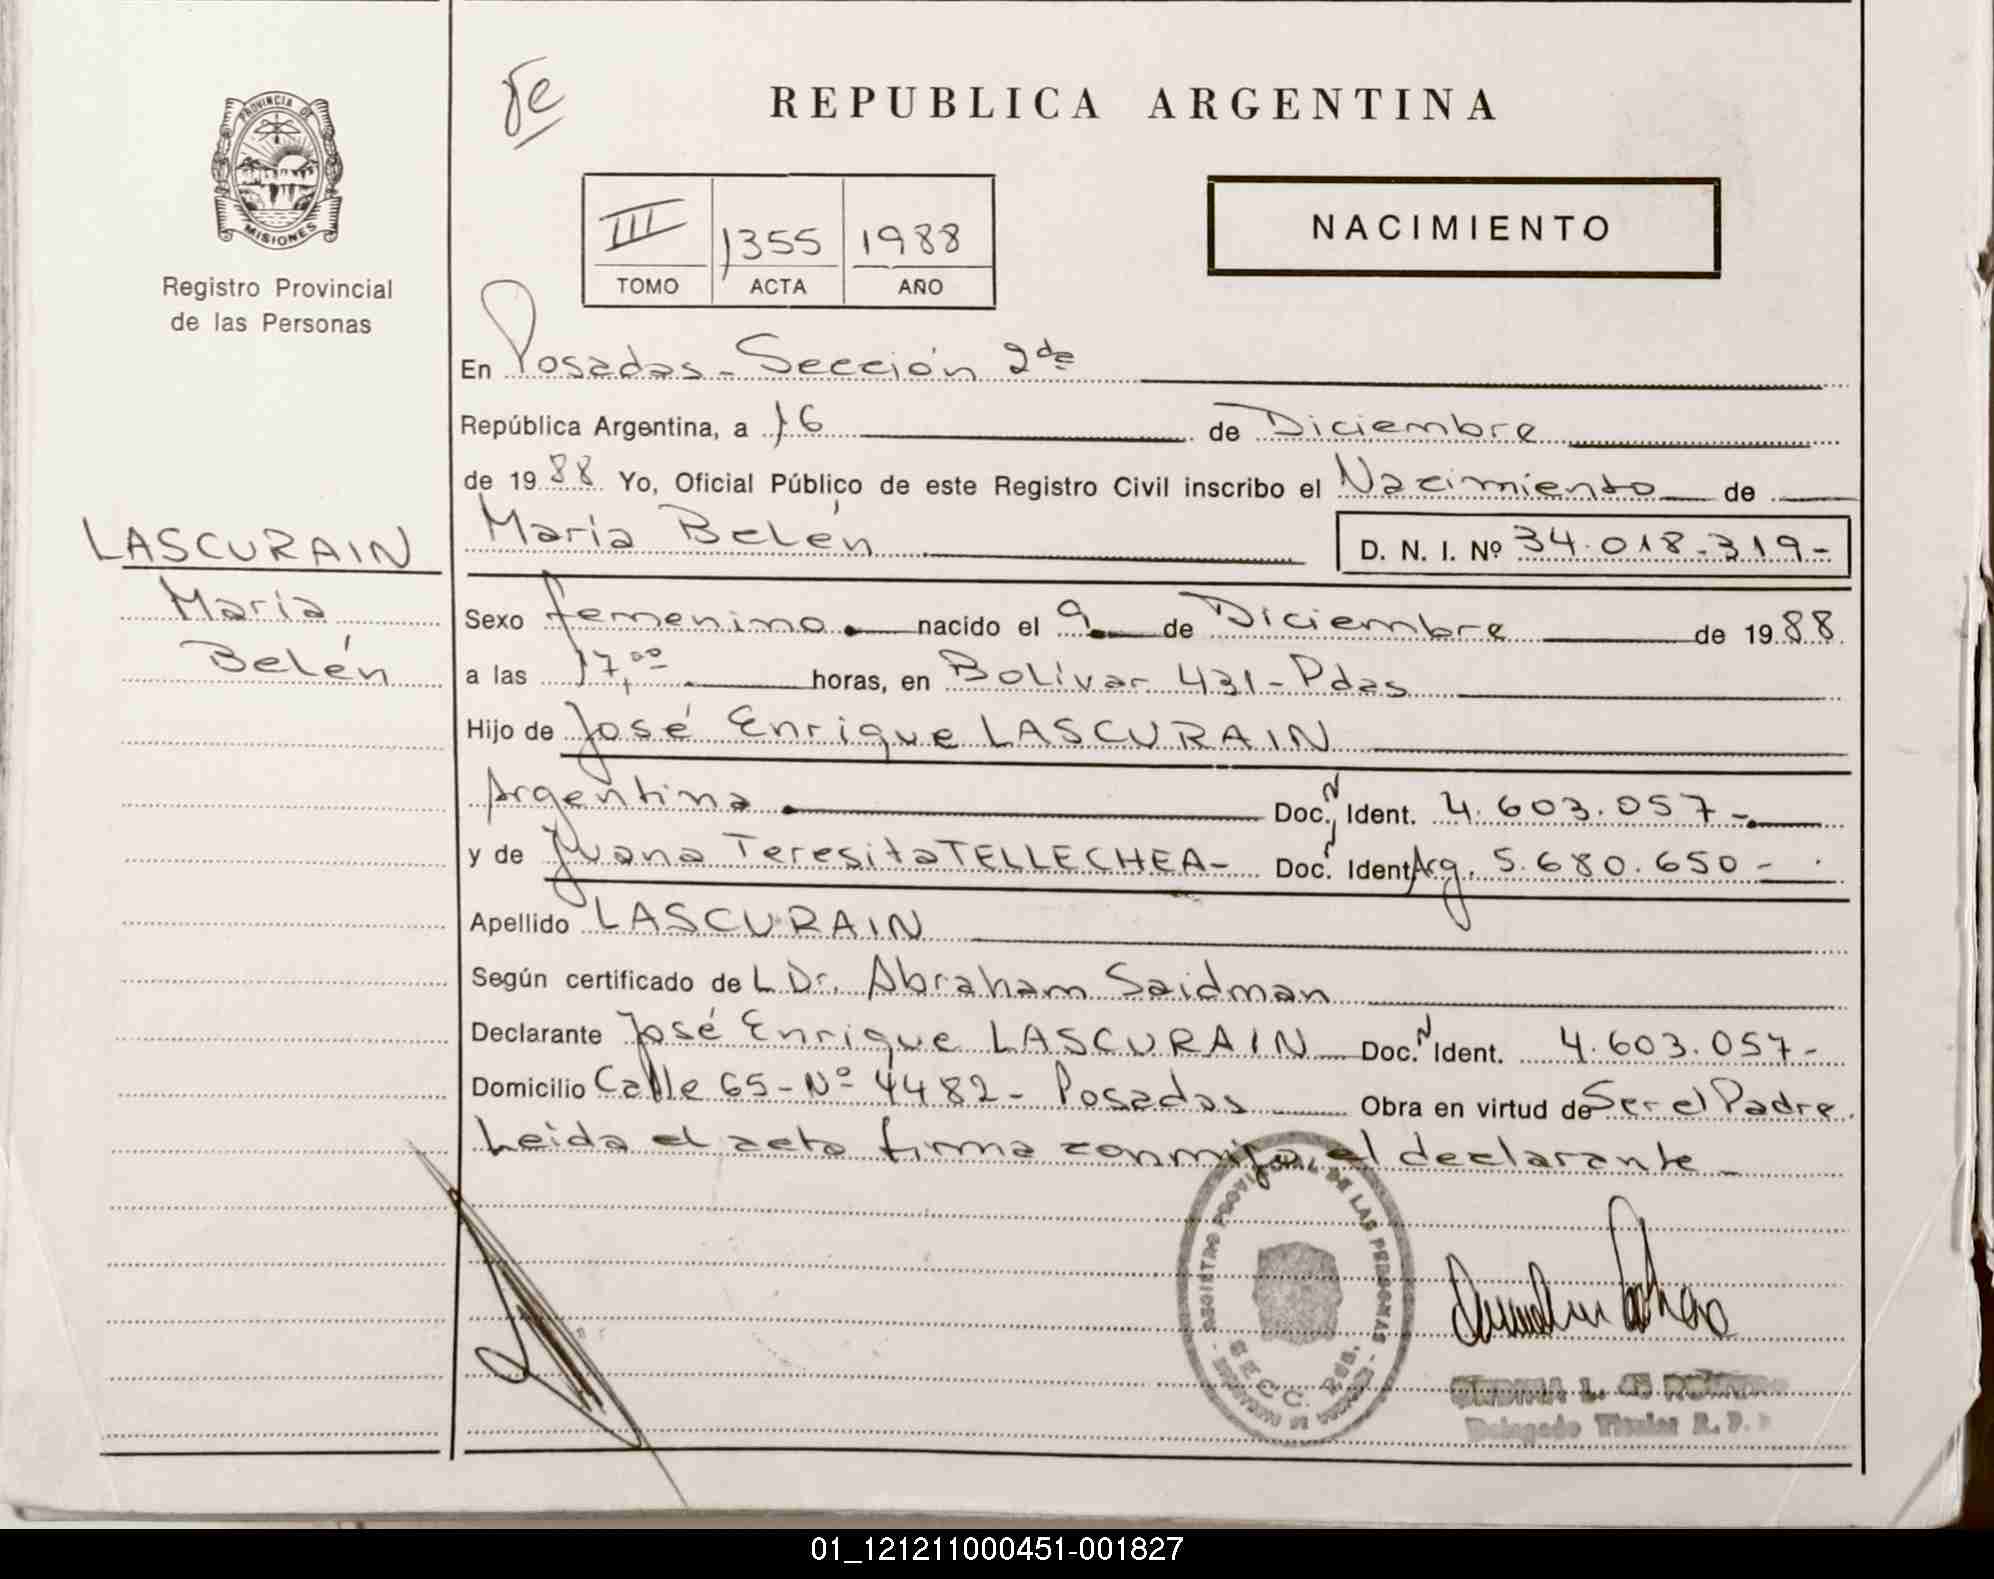 PROVINCIA DE
MISIONES
Registro Provincial
de las Personas
REPUBLICA ARGENTINA
III 1355 1988
TOMO ACTA AÑO
NACIMIENTO
En Posadas - Sección 2da
República Argentina, a 16 de Diciembre
de 1988 Yo, Oficial Público de este Registro Civil inscribo el Nacimiento de
LASCURAIN
María
Belén
María Belén D. N. I. Nº 34.018.319-
Sexo femenino nacido el 9 de Diciembre de 1988
a las 17,00 horas, en Bolívar 431-Pdas
Hijo de José Enrique LASCURAIN
Argentina Doc. N Ident. 4.603.057-
y de Juana Teresita TELLECHEA- Doc. N Ident Arg. 5.680.650-
Apellido LASCURAIN
Según certificado de L Dr. Abraham Saidman
Declarante José Enrique LASCURAIN Doc. N Ident. 4.603.057-
Domicilio Calle 65-Nº 4482- Posadas Obra en virtud de Ser el Padre
Leida el acta firma conmigo el declarante-
REGISTRO PROVINCIAL DE LAS PERSONAS
Delegado Titular R. P.
01_121211000451-001827